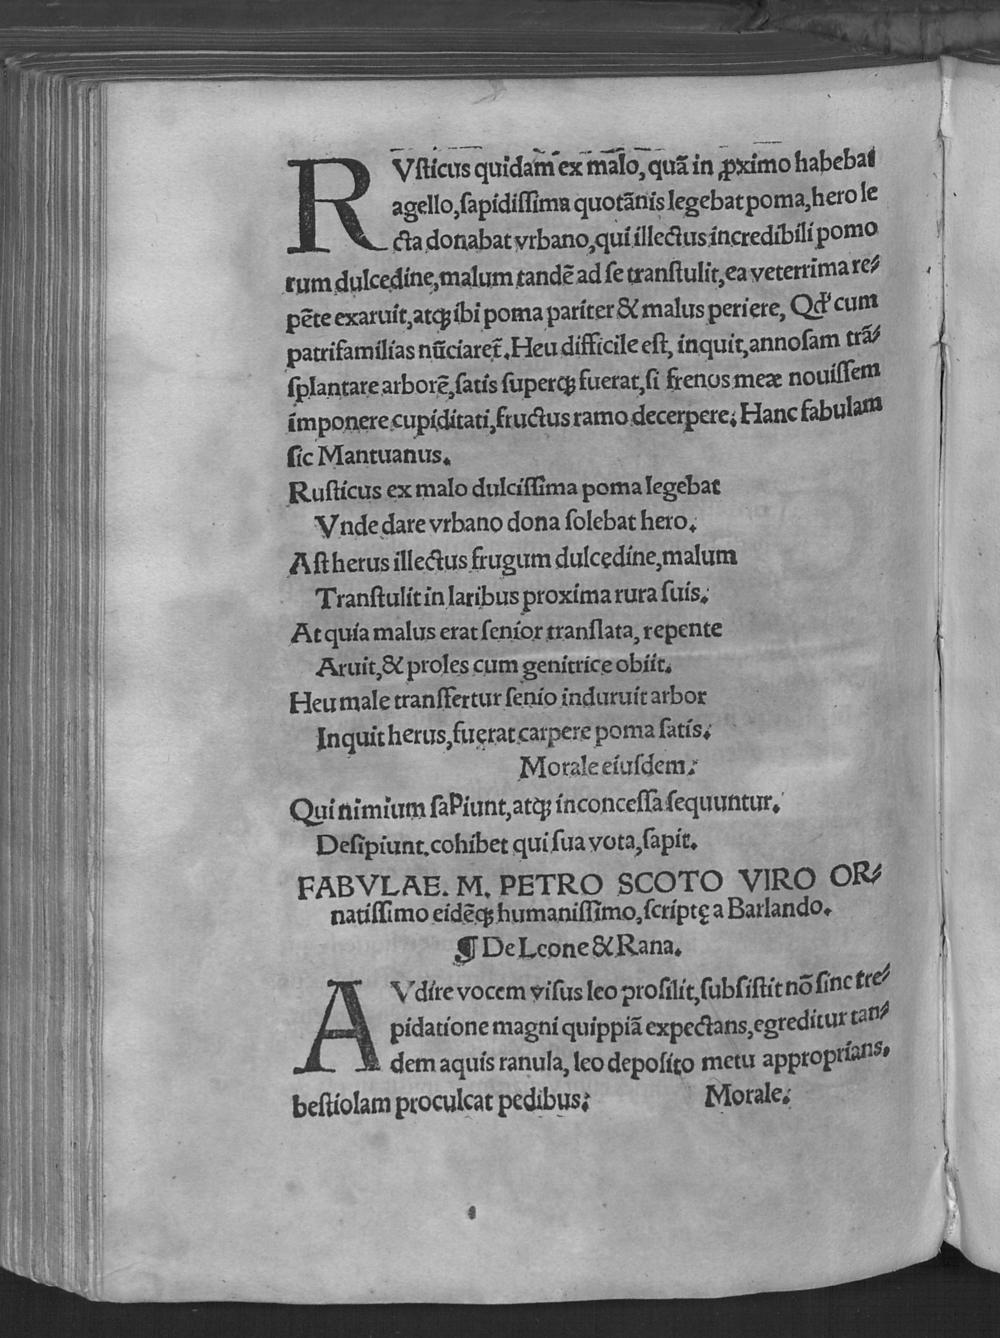 RVſticus quidam ex malo, quā in ꝓximo habebat
agello, ſapidiſſima quotānis legebat poma, hero le
cta donabat vrbano, qui illectus incredibili pomo
rum dulcedine, malum tandē ad ſe tranſtulit, ea veterrima re⸗
pēte exaruit, atqꝫ ibi poma pariter & malus periere, Qđ cum
patrifamilias nūciaret̄. Heu difficile eſt, inquit, annoſam trā⸗
ſplantare arborē, ſatis ſuperqꝫ fuerat, ſi frenos meæ nouiſſem
imponere cupiditati, fructus ramo decerpere. Hanc fabulam
ſic Mantuanus.
Ruſticus ex malo dulciſſima poma legebat
Vnde dare vrbano dona ſolebat hero.
Aſt herus illectus frugum dulcędine, malum
Tranſtulit in laribus proxima rura ſuis.
At quia malus erat ſenior tranſlata, repente
Aruit, & proles cum genitrice obiit.
Heu male tranſfertur ſenio induruit arbor
Inquit herus, fuerat carpere poma ſatis.
Morale eiuſdem.
Qui nimium ſaPiunt, atqꝫ inconceſſa ſequuntur.
Deſipiunt. cohibet qui ſua vota, ſapit.
FABVLAE. M. PETRO SCOTO VIRO OR⸗
natiſſimo eidēqꝫ humaniſſimo, ſcriptę a Barlando.
¶ De Leone & Rana.
AVdire vocem viſus leo proſilit, ſubſiſtit nō ſine tre⸗
pidatione magni quippiā expectans, egreditur tan⸗
dem aquis ranula, leo depoſito metu approprians.
beſtiolam proculcat pedibus. Morale.